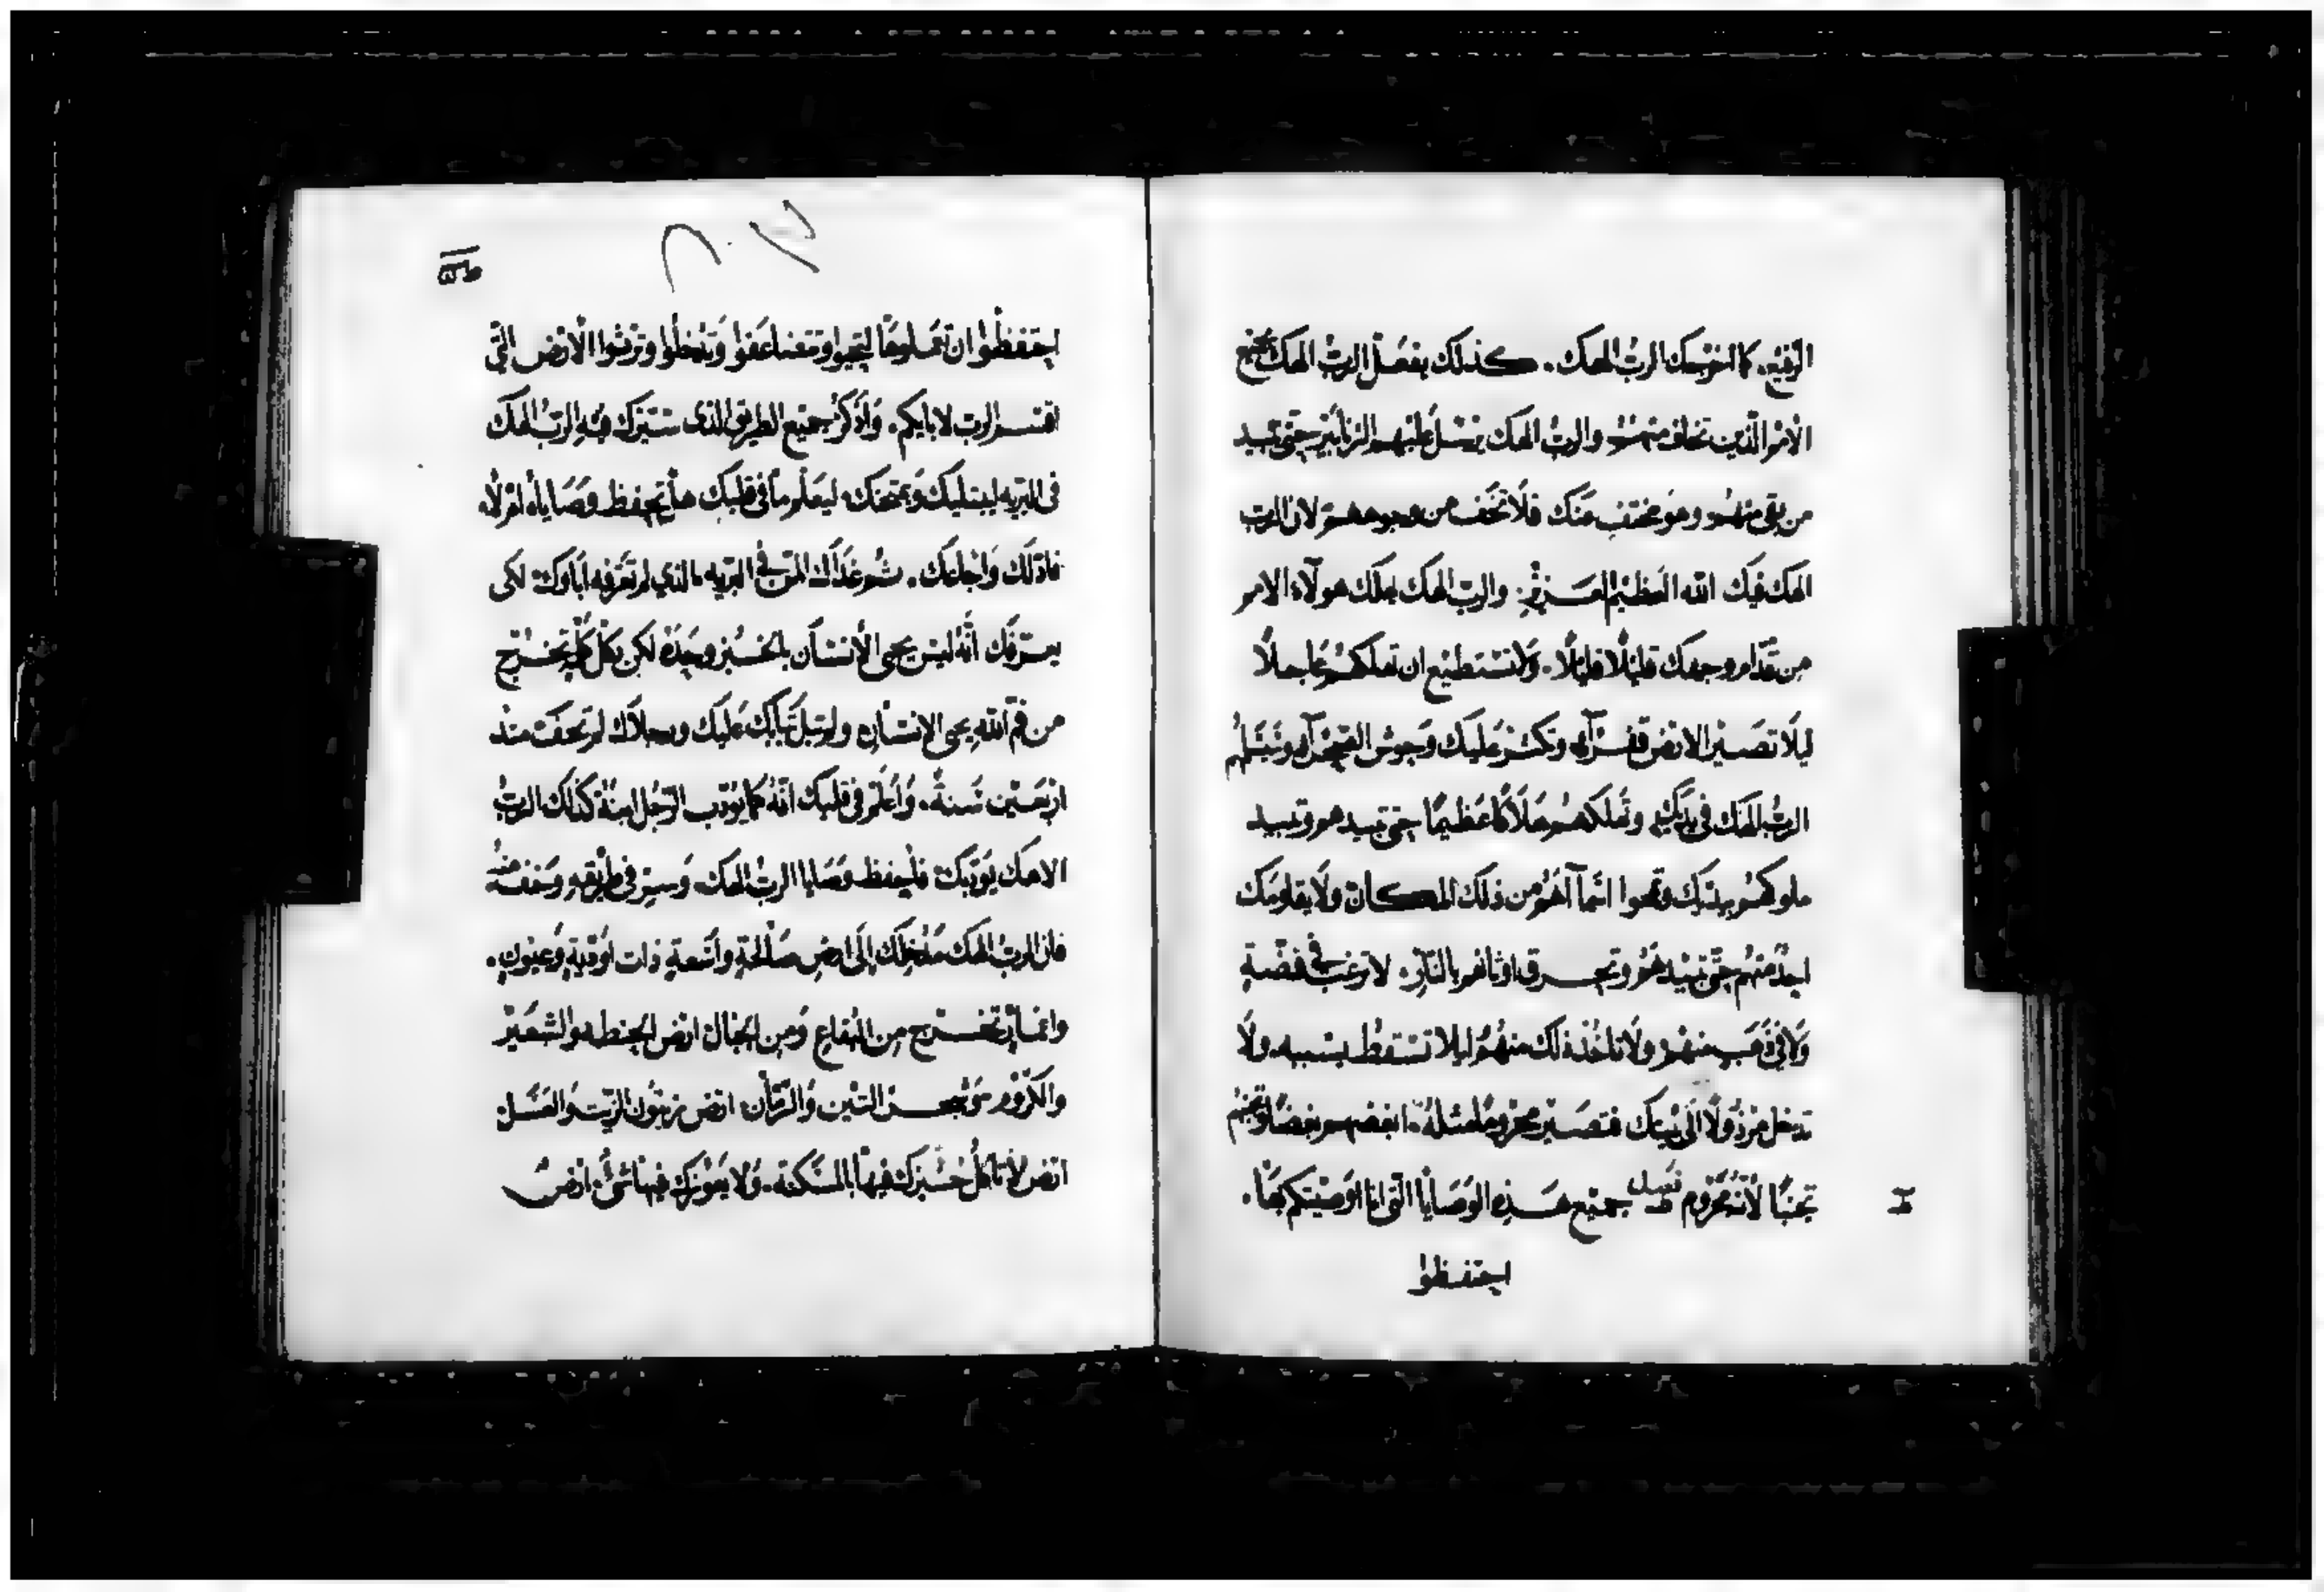 الرفيع. كما اخرجك الرب الهك. كذلك يفعل الرب الهك بجميع
الامم الذين تخاف منهم والرب الهك يرسل عليهم الزنابير حتى تبيد
من بقى منهم وهو مختف عنك فلا تخف من وجوههم لان الرب
الهك فيك الله العظيم العزيز. والرب الهك يهلك هولاء الامم
من قدام وجهك قليلا قليلا. ولا تستطيع ان تهلكهم عاجلا
ليلا تصير الارض قفرا وتكثر عليك وحوش الصحرا ويسلمهم
الرب الهك في يديك وتهلكهم هلاكا عظيما حتى تبيدهم وتبيد
ملوكهم بيديك وتمحوا اسماهم من ذلك المكان ولا يقاومك
احد منهم حتى تبيدهم وتحرق اوثانهم بالنار. لا ترغب في فضة
ولا في ذهب منهم ولا تاخذه لك منهم ليلا تسقط بسببه. ولا
تدخل مرذولا الى بيتك فتصير محروما مثله. ابغضهم بغضا وتجنبهم
تجنبا لانه محروم فصل جميع هذه الوصايا التي انا اوصيتكم بها.
احتفظوا
احتفظوا ان تعملوها لتحيوا وتتضاعفوا وتدخلوا وترثوا الارض التي
اقسم الرب لابايكم. واذكر جميع الطريق الذي سيرك فيه الرب الهك
في البريه ليبتليك ويمتحنك ليعلم ما في قلبك هل تحفظ وصاياه ام لا
فاذلك واجاعك. ثم غذاك المن في البريه الذي لم تعرفه اباوك لكى
يعرفك انه ليس يحيى الانسان بالخبز وحده لكن بكل كلمه تخرج
من فم الله يحيى الانسان ولم تبل ثيابك عليك ورجلاك لم تحف منذ
اربعين سنة. واعلم في قلبك انه كما يودب الرجل ابنه كذلك الرب
الاهك يودبك فلتحفظ وصايا الرب الهك وسير في طريقه وخف منه
فان الرب الهك مدخلك الى ارض صالحة واسعة ذات اودية وعيون.
وانهار تخرج من البقاع ومن الجبال ارض الحنطه والشعير
والكروم موضع التين والرمان ارض زيتون الزيت والعسل
ارض لا تاكل خبزك فيها بالمسكنة. ولا يعوزك فيها شى. ارض